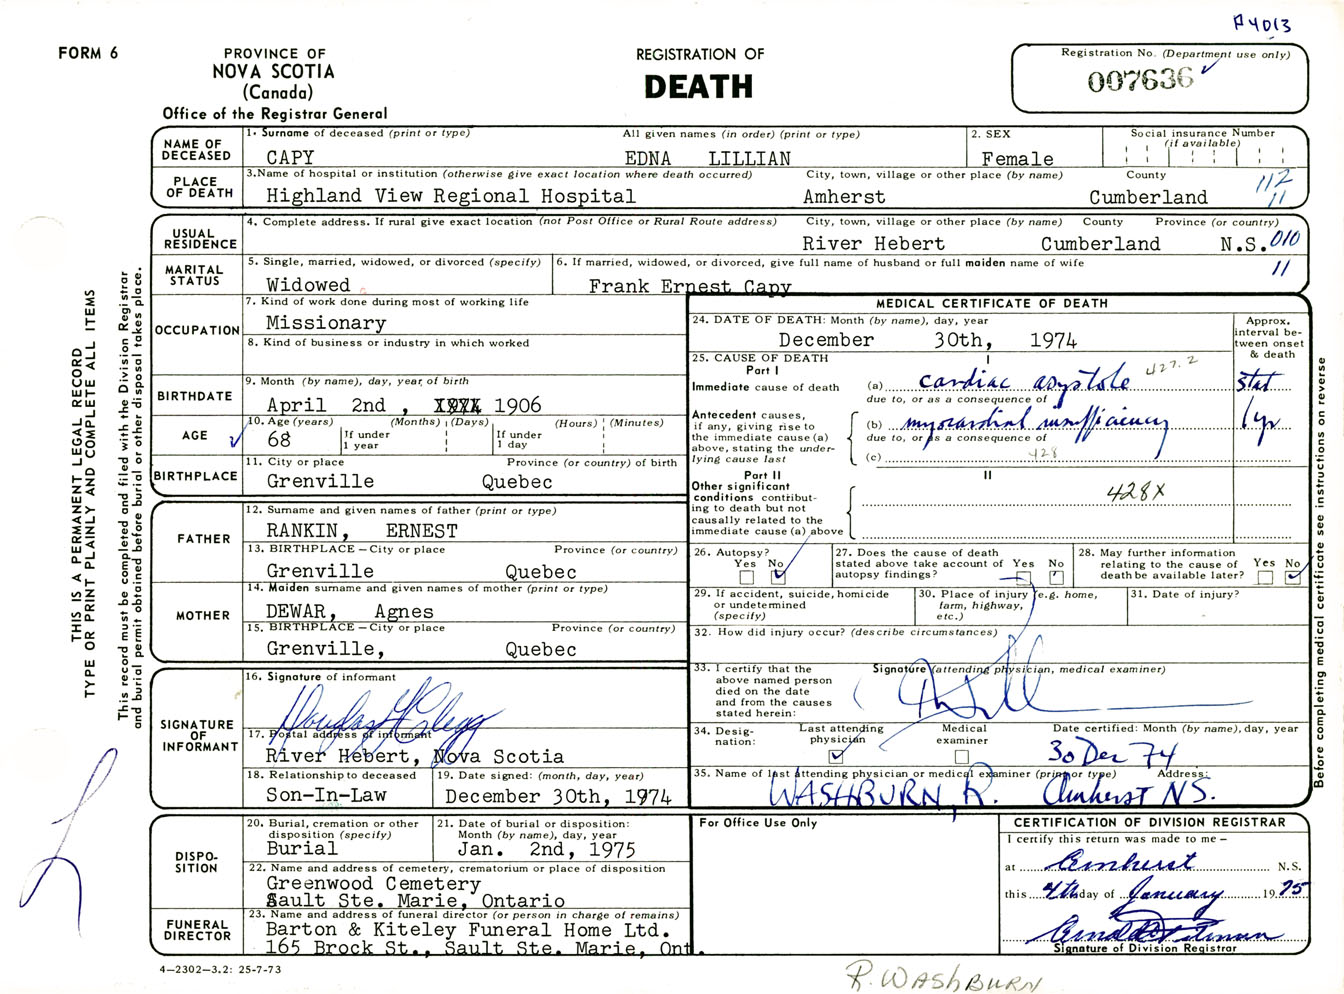 P4013
FORM 6
PROVINCE OF
NOVA SCOTIA
(Canada)
Office of the Registrar General
REGISTRATION OF
DEATH
Registration No. (Department use only)
007636
NAME OF DECEASED
1. Surname of deceased (print or type) All given names (in order) (print or type)
CAPY EDNA LILLIAN
2. SEX
Female
Social insurance Number
(if available)
PLACE OF DEATH
3. Name of hospital or institution (otherwise give exact location where death occurred) City, town, village or other place (by name) County
Highland View Regional Hospital Amherst Cumberland
112
11
USUAL RESIDENCE
4. Complete address. If rural give exact location (not Post Office or Rural Route address) City, town, village or other place (by name) County Province (or country)
River Hebert Cumberland N.S. 010
11
MARITAL STATUS
5. Single, married, widowed, or divorced (specify)
Widowed
6. If married, widowed, or divorced, give full name of husband or full maiden name of wife
Frank Ernest Capy
OCCUPATION
7. Kind of work done during most of working life
Missionary
8. Kind of business or industry in which worked
BIRTHDATE
9. Month (by name), day, year of birth
April 2nd, 1906
AGE
10. Age (years) (Months) (Days) (Hours) (Minutes)
68 If under 1 year If under 1 day
BIRTHPLACE
11. City or place Province (or country) of birth
Grenville Quebec
FATHER
12. Surname and given names of father (print or type)
RANKIN, ERNEST
13. BIRTHPLACE – City or place Province (or country)
Grenville Quebec
MOTHER
14. Maiden surname and given names of mother (print or type)
DEWAR, Agnes
15. BIRTHPLACE – City or place Province (or country)
Grenville, Quebec
SIGNATURE OF INFORMANT
16. Signature of informant
Douglas H Clegg
17. Postal address of informant
River Hebert, Nova Scotia
18. Relationship to deceased
Son-In-Law
19. Date signed: (month, day, year)
December 30th, 1974
DISPOSITION
20. Burial, cremation or other disposition (specify)
Burial
21. Date of burial or disposition: Month (by name), day, year
Jan. 2nd, 1975
22. Name and address of cemetery, crematorium or place of disposition
Greenwood Cemetery
Sault Ste. Marie, Ontario
FUNERAL DIRECTOR
23. Name and address of funeral director (or person in charge of remains)
Barton & Kiteley Funeral Home Ltd.
165 Brock St., Sault Ste. Marie, Ont.
MEDICAL CERTIFICATE OF DEATH
24. DATE OF DEATH: Month (by name), day, year
December 30th, 1974
Approx. interval between onset & death
25. CAUSE OF DEATH
Part I
I
Immediate cause of death (a) cardiac asystole 427.2 stat
due to, or as a consequence of
Antecedent causes, if any, giving rise to the immediate cause (a) above, stating the underlying cause last
(b) myocardial insufficiency 1 yr
due to, or as a consequence of
428
(c)
Part II
II
Other significant conditions contributing to death but not causally related to the immediate cause (a) above
428X
26. Autopsy?
Yes No
27. Does the cause of death stated above take account of autopsy findings?
Yes No
28. May further information relating to the cause of death be available later?
Yes No
29. If accident, suicide, homicide or undetermined (specify)
30. Place of injury (e.g. home, farm, highway, etc.)
31. Date of injury?
32. How did injury occur? (describe circumstances)
33. I certify that the above named person died on the date and from the causes stated herein:
Signature (attending physician, medical examiner)
34. Designation:
Last attending physician
Medical examiner
Date certified: Month (by name), day, year
30 Dec 74
35. Name of last attending physician or medical examiner (print or type) Address:
WASHBURN, R. Amherst NS.
For Office Use Only
CERTIFICATION OF DIVISION REGISTRAR
I certify this return was made to me –
at Amherst N.S.
this 4th day of January 1975
Signature of Division Registrar
THIS IS A PERMANENT LEGAL RECORD
TYPE OR PRINT PLAINLY AND COMPLETE ALL ITEMS
This record must be completed and filed with the Division Registrar
and burial permit obtained before burial or other disposal takes place.
Before completing medical certificate see instructions on reverse
4–2302–3.2: 25-7-73
R. WASHBURN